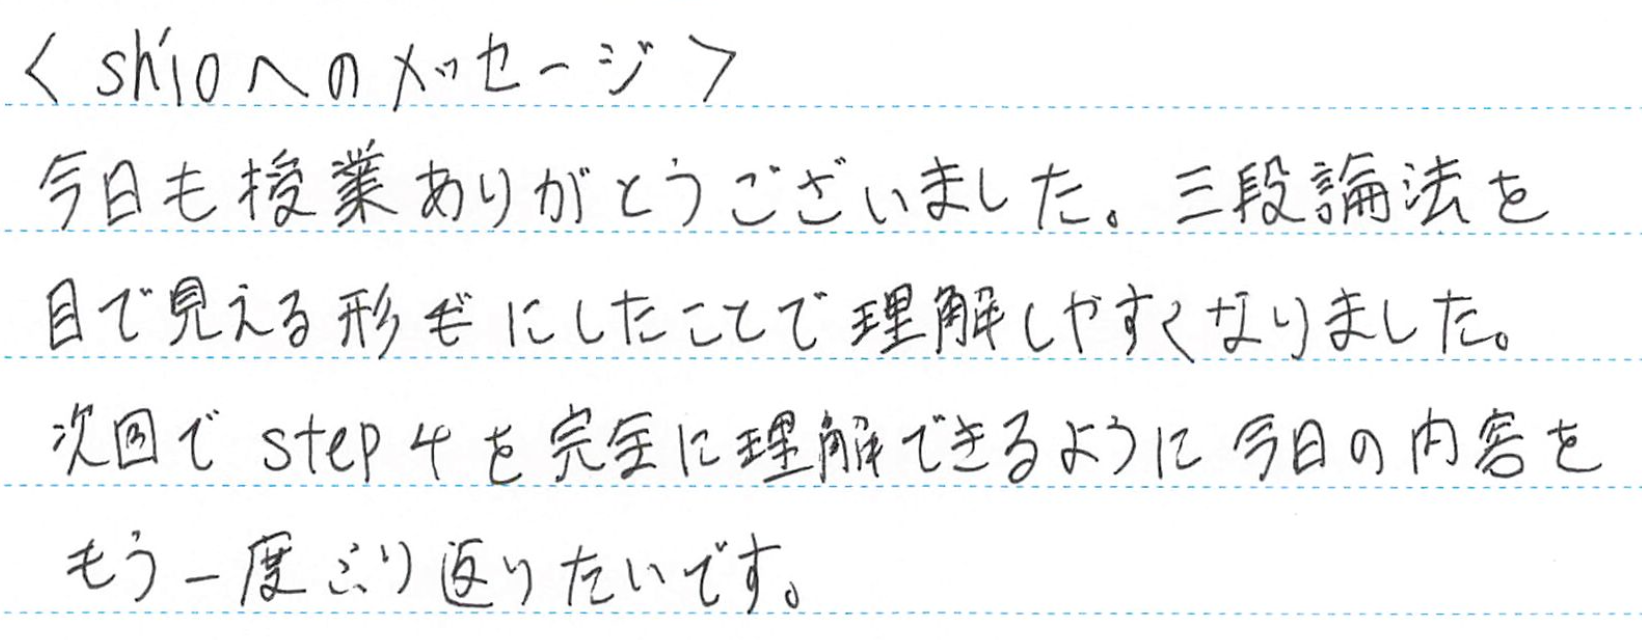 < shioへのメッセージ >
今日も授業ありがとうございました。三段論法を
目で見える形にしたことで理解しやすくなりました。
次回で step 4 を完全に理解できるように今日の内容を
もう一度ふり返りたいです。